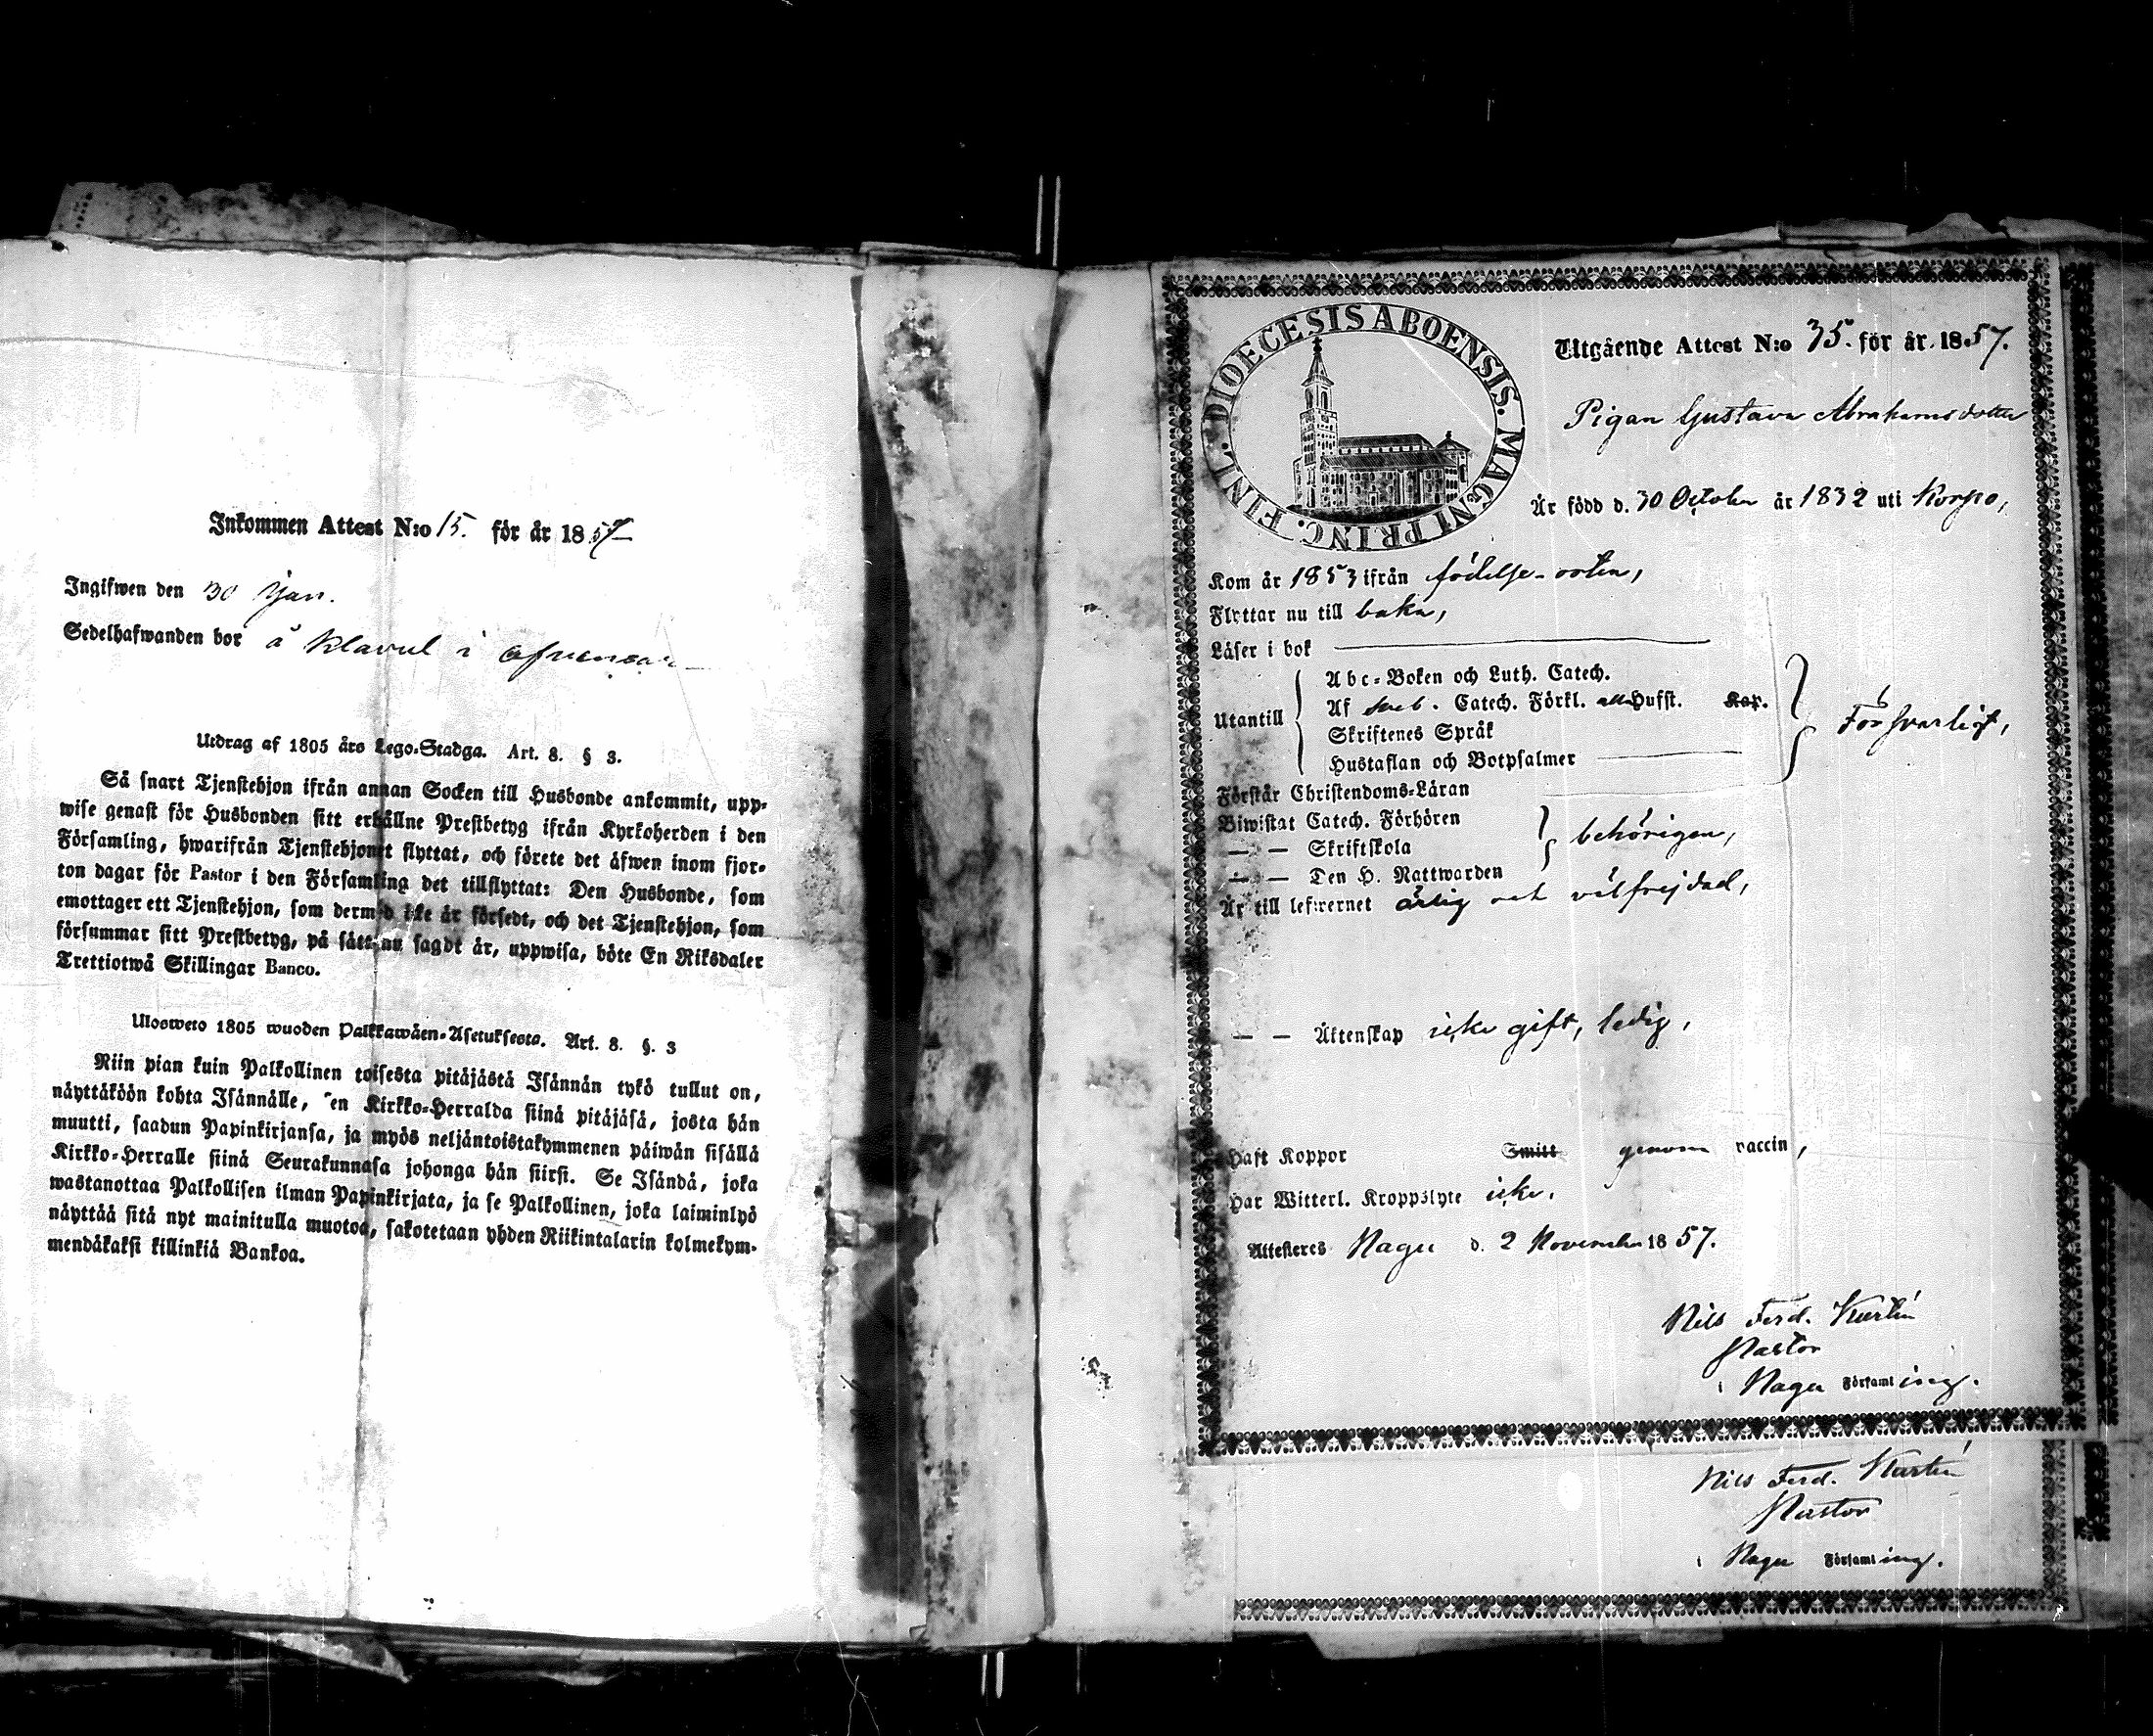 Inkommen Attest N:o 15. för år 1857
Ingifwen den 30 Jan.
Sedelhafwanden bor å Klavul i
Utdrag af 1805 års Lego-Stadga. Art. 8. § 3.
Så snart Tjenstehjon ifrån annan Socken till Husbonde ankommit, upp-
wise genast för Husbonden sitt erhållne Prestbetyg ifrån Kyrkoherden i den
Församling, hwarifrån Tjenstehjonet flyttat, och förete det äfwen inom fjor-
ton dagar för Pastor i den Församling det tillflyttat: Den Husbonde, som
emottager ett Tjenstehjon, som dermed icke är försedt, och det Tjenstehjon, som
försummar sitt Prestbetyg, på sätt nu sagdt är, uppwisa, böte En Riksdaler
Trettiotwå Skillingar Banco.
Ulosweto 1805 wuoden Palkkawäen-Asetuksesta. Art. 8. §. 3
Niin pian kuin Palkollinen toisesta pitäjästä Isännän tykö tullut on,
näyttäköön kohta Isännälle, sen Kirkko-Herralda siinä pitäjäsä, josta hän
muutti, saadun Papinkirjansa, ja myös neljäntoistakymmenen päiwän sisällä
Kirkko-Herralle siinä Seurakunnasa johonga hän siirsi. Se Isändä, joka
wastanottaa Palkollisen ilman Papinkirjata, ja se Palkollinen, joka laiminlyö
näyttää sitä nyt mainitulla muotoa, sakotetaan yhden Riikintalarin kolmekym-
mendäkaksi killinkiä Bankoa.
FINL. DIOECESIS ABOENSIS. MAGNI PRINC.
Utgående Attest N:o 35. för år 1857.
Pigan Gustava Abrahamsdotter
Är född d. 30 October år 1832 uti Korpo,
Kom år 1853 ifrån födelse-orten,
Flyttar nu till baka,
Läser i bok
Utantill
Abc-Boken och Luth. Catech.
Af Sveb. Catech. Förkl. alla Hufst. Kap.
Skriftenes Språk
Hustaflan och Botpsalmer
Försvarligt,
Förstår Christendoms-Läran
Biwistat Catech. Förhören
— — Skriftskola
behörigen,
— — Den H. Nattwarden
Är till lefwernet ärlig och välfrejdad,
— — Äktenskap icke gift, ledig,
Haft Koppor Smitt genom vaccin,
Har Witterl. Kroppslyte icke.
Attesteres Nagu d. 2 November 1857.
Nils Ferd.
Pastor
i Nagu Församling.
Nils Ferd.
Pastor
i Nagu Församling.